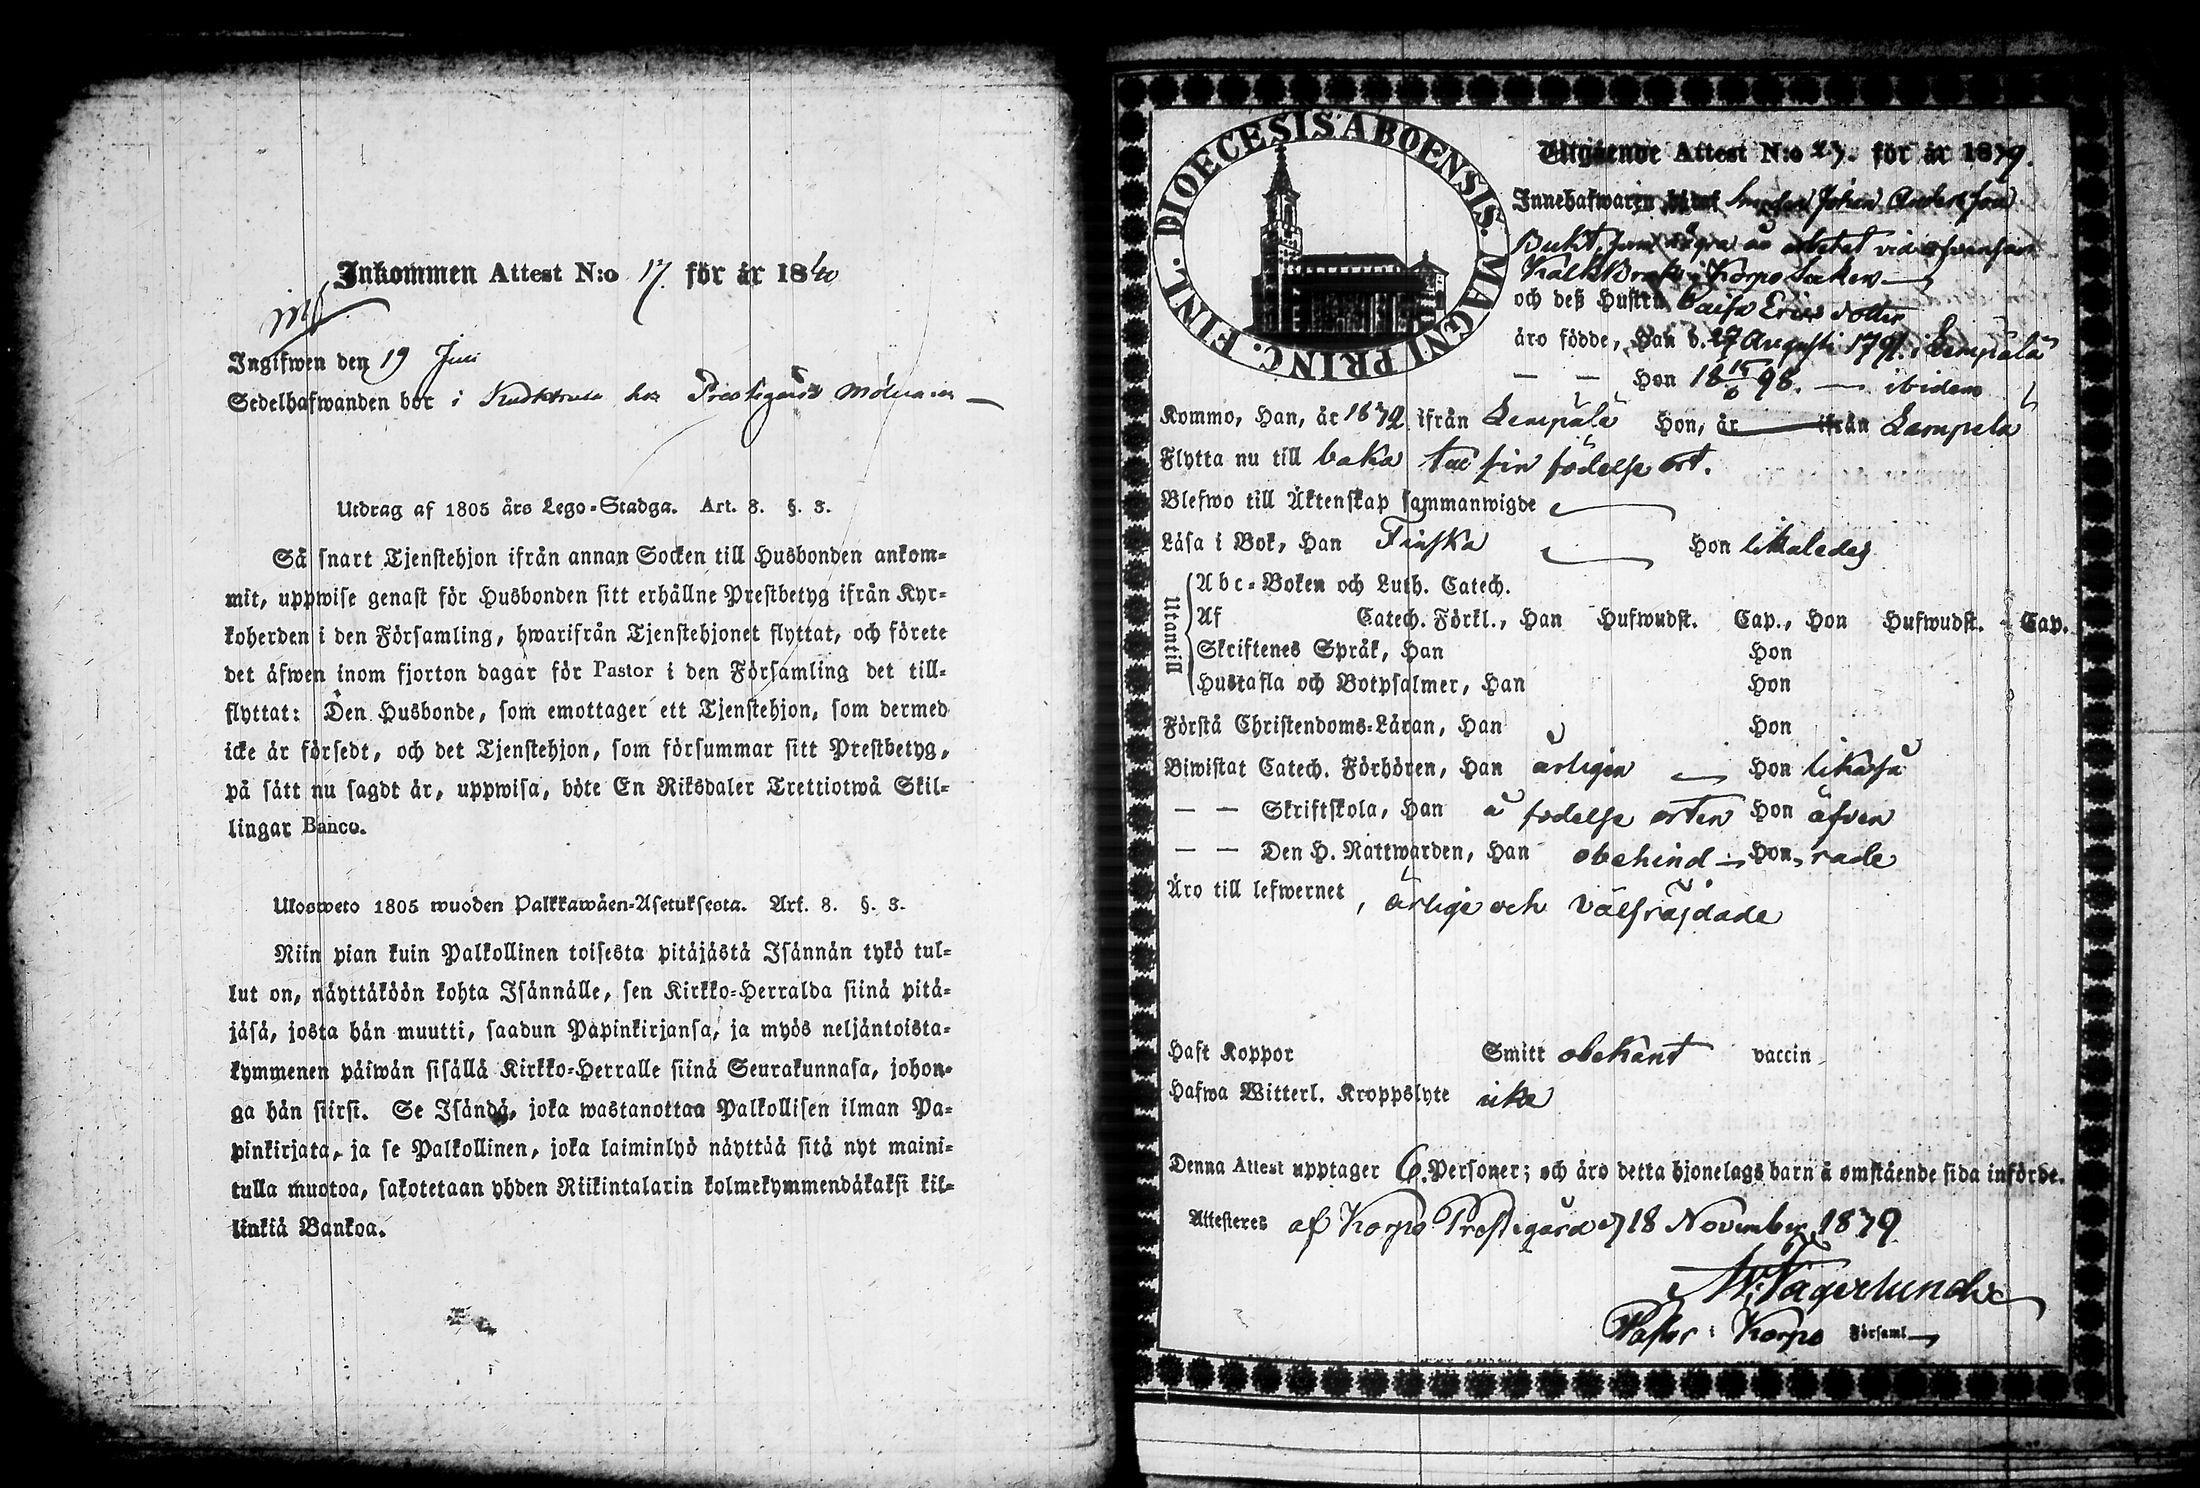 Inkommen Attest N:o 17. för år 1840
Ingifwen den 19 Juli
Sedelhafwanden bor i hos
Utdrag af 1805 års Lego-Stadga. Art. 8. §. 3.
Så snart Tjenstehjon ifrån annan Socken till Husbonden ankom-
mit, uppwise genast för Husbonden sitt erhållne Prestbetyg ifrån Kyr-
koherden i den Församling, hwarifrån Tjenstehjonet flyttat, och förete
det äfwen inom fjorton dagar för Pastor i den Församling det till-
flyttat: Den Husbonde, som emottager ett Tjenstehjon, som dermed
icke är försedt, och det Tjenstehjon, som försummar sitt Prestbetyg,
på sätt nu sagdt är, uppwisa, böte En Riksdaler Trettiotwå Skil-
lingar Banco.
Ulosweto 1805 wuoden Palkkawäen-Asetuksesta. Art. 8. §. 3.
Niin pian kuin Palkollinen toisesta pitäjästä Isännän tykö tul-
lut on, näyttäköön kohta Isännälle, sen Kirkko-Herralda siinä pitä-
jäsä, josta hän muutti, saadun Papinkirjansa, ja myös neljäntoista-
kymmenen päiwän sisällä Kirkko-Herralle siinä Seurakunnasa, johon-
ga hän siirsi. Se Isändä, joka wastanottaa Palkollisen ilman Pa-
pinkirjata, ja se Palkollinen, joka laiminlyö näyttää sitä nyt maini-
tulla muotoa, sakotetaan yhden Riikintalarin kolmekymmendäkaksi kil-
linkiä Bankoa.
DIOECESIS ABOENSIS. MAGNI PRINC. FINL.
Utgående Attest N:o 27. för år 1839.
Innehafwaren Smeden Johan Andersson
Bukt, som några år arbetat vid
Kalk Brott i Korpo Socken
och deß Hustru Caisa Ericsdotter
äro födde, Han d. 27 Augusti 1791. i Lempälä
— — Hon 18 15/6 98. — ibidem
Kommo, Han, år 1832 ifrån Lempälä Hon, år ifrån Lempelä
Flytta nu till baka till sin födelse ort.
Blefwo till Äktenskap sammanwigde
Läsa i Bok, Han Finska Hon likaledes
Utantill
Abc-Boken och Luth. Catech.
Af Catech. Förkl., Han Hufwudst. Cap., Hon Hufwudst. Cap.
Skriftenes Språk, Han Hon
Hustafla och Botpsalmer, Han Hon
Förstå Christendoms-Läran, Han Hon
Biwistat Catech. Förhören, Han årligen Hon likaså
— — Skriftskola, Han å födelse orten Hon äfven
— — Den H. Nattwarden, Han obehind- Hon, rade
Äro till lefwernet, ärlige och välfräjdade
Haft Koppor Smitt obekant vaccin
Hafwa Witterl. Kroppslyte icke
Denna Attest upptager 6. Personer; och äro detta hjonelags barn å omstående sida införde.
Attesteres af Korpo Prestegård d 18 November 1839
Fagerlund
Pastor i Korpo Församl.